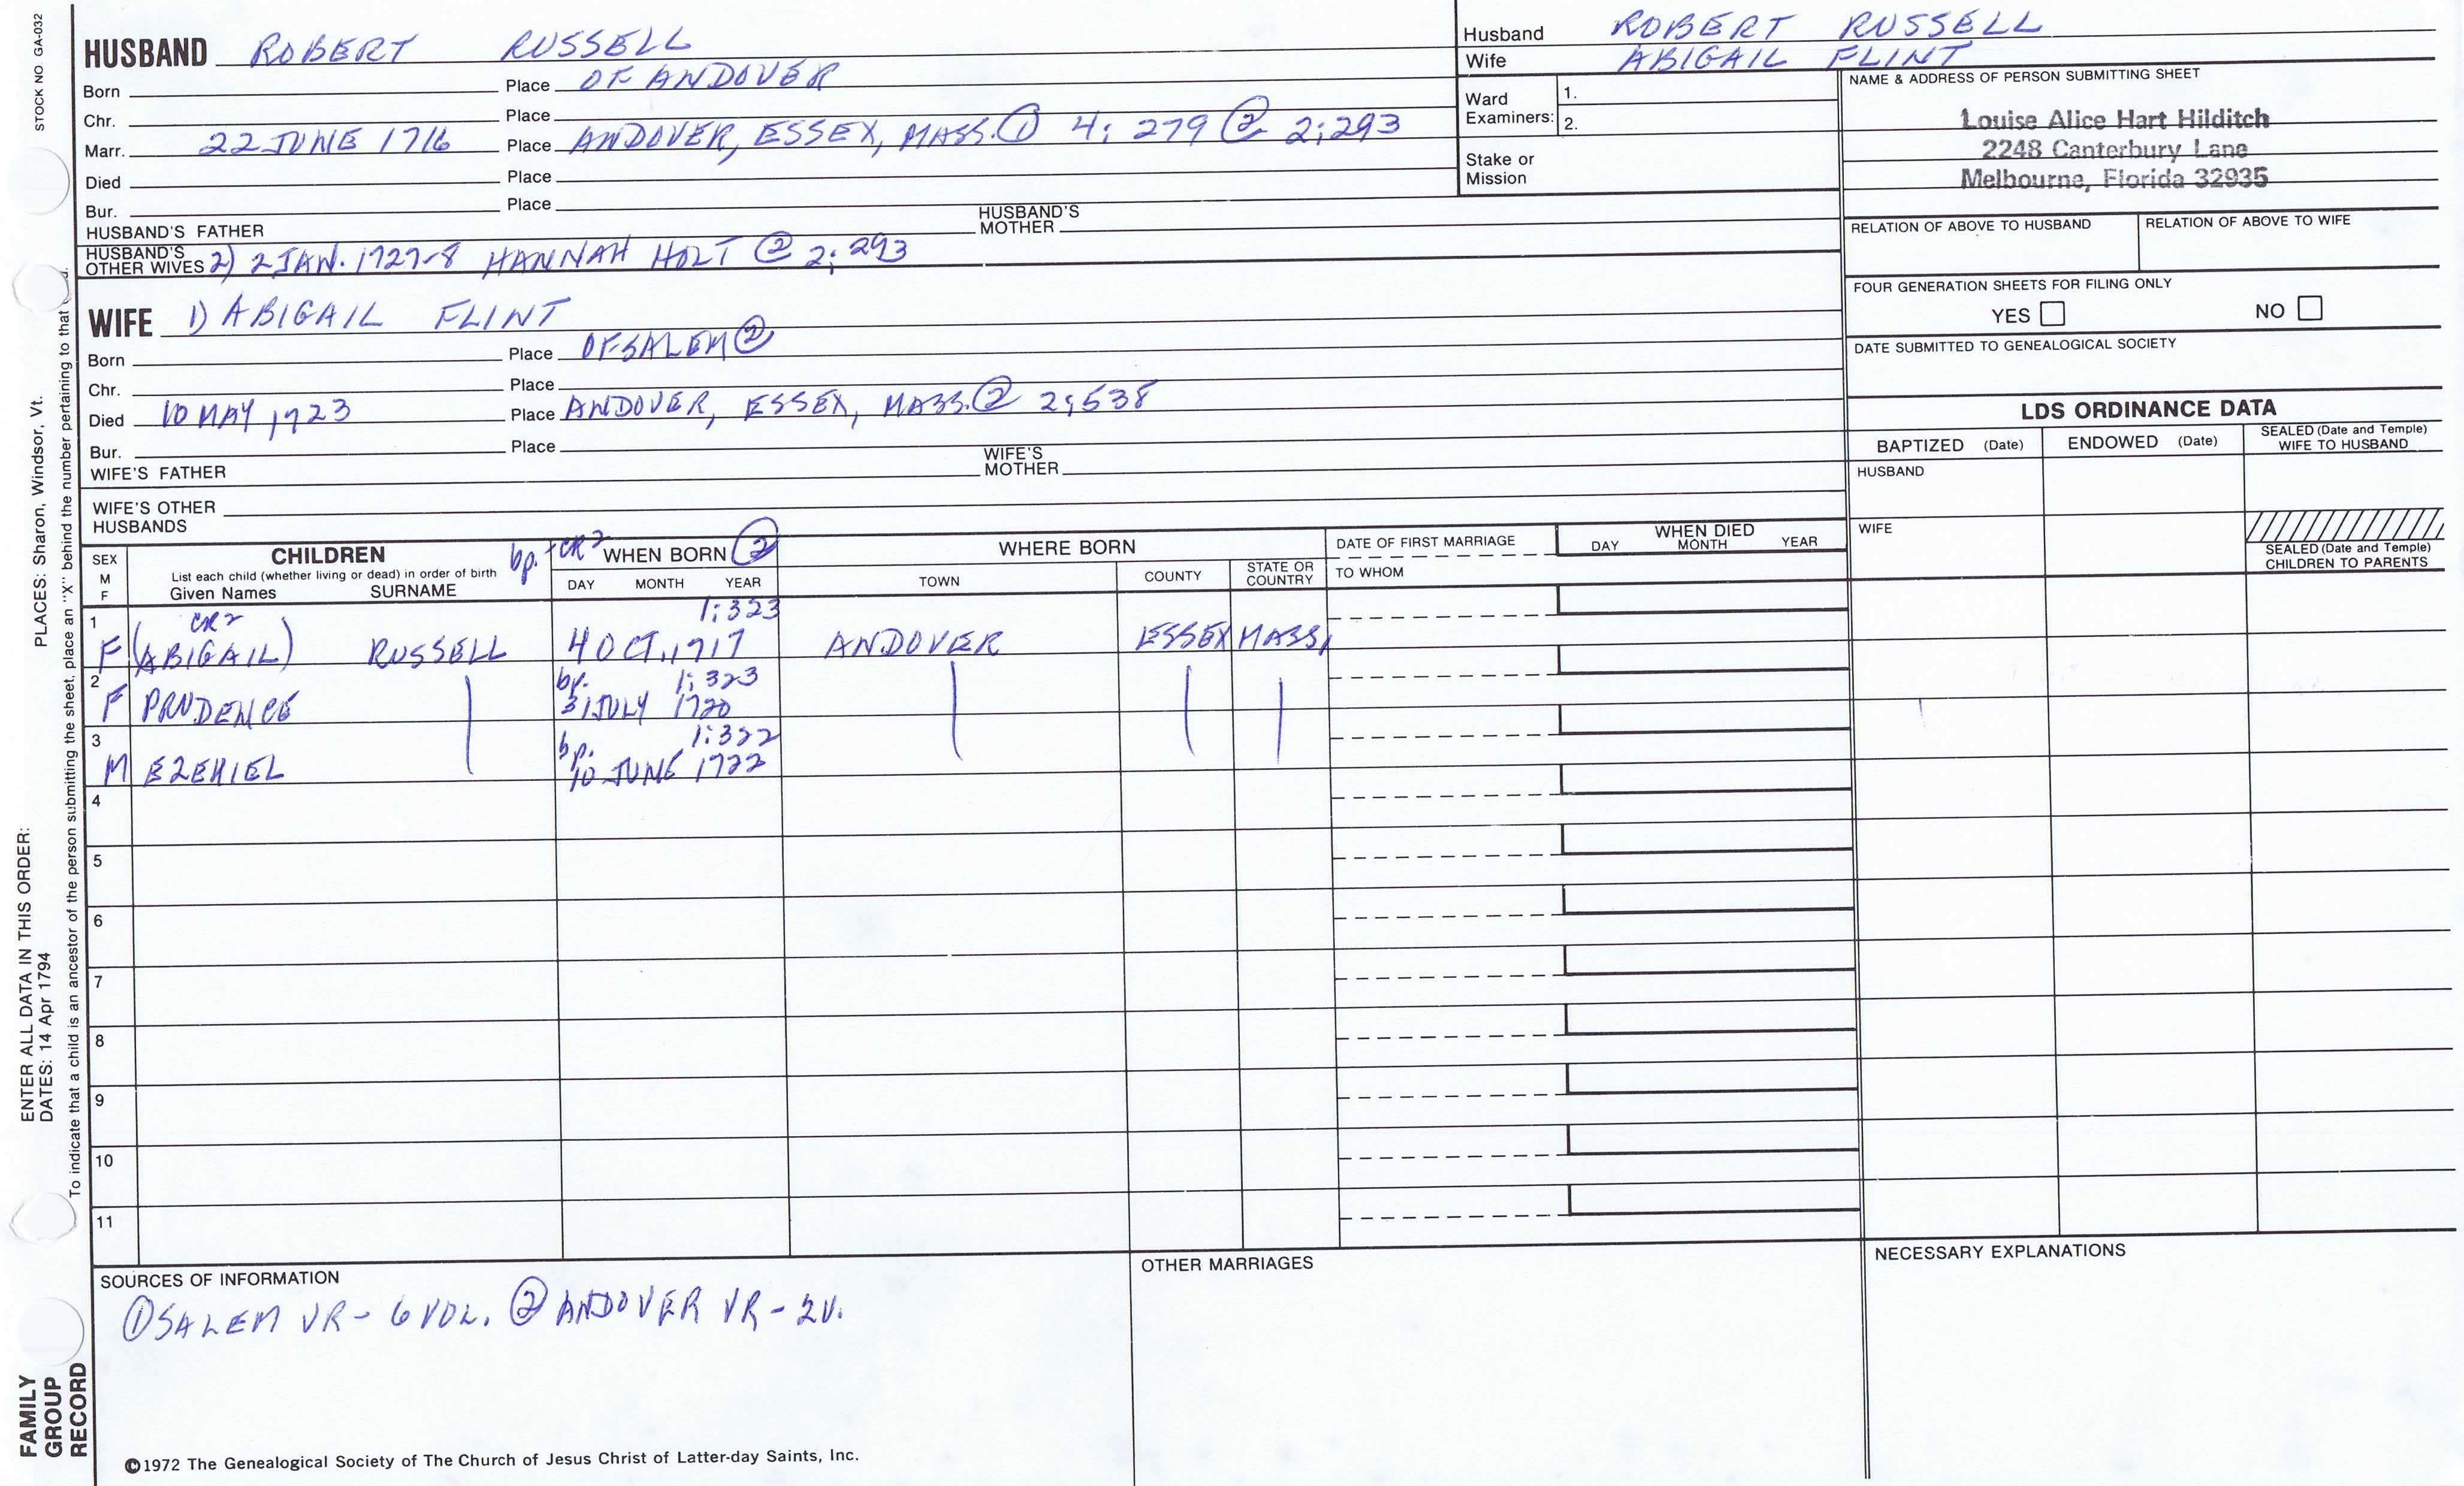 STOCK NO GA-032
HUSBAND ROBERT RUSSELL
Born Place OF ANDOVER
Chr. Place
Marr. 22 JUNE 1716 Place ANDOVER, ESSEX, MASS. ① 4: 279 ② 2:293
Died Place
Bur. Place
HUSBAND'S FATHER HUSBAND'S MOTHER
HUSBAND'S OTHER WIVES 2) 2 JAN. 1727-8 HANNAH HOLT ② 2:293
WIFE 1) ABIGAIL FLINT
Born Place OF SALEM ②
Chr. Place
Died 10 MAY 1723 Place ANDOVER, ESSEX, MASS. ② 2:538
Bur. Place
WIFE'S FATHER WIFE'S MOTHER
WIFE'S OTHER HUSBANDS
Husband ROBERT RUSSELL
Wife ABIGAIL FLINT
Ward Examiners: 1.
2.
Stake or Mission
NAME & ADDRESS OF PERSON SUBMITTING SHEET
Louise Alice Hart Hilditch
2248 Canterbury Lane
Melbourne, Florida 32935
RELATION OF ABOVE TO HUSBAND RELATION OF ABOVE TO WIFE
FOUR GENERATION SHEETS FOR FILING ONLY
YES NO
DATE SUBMITTED TO GENEALOGICAL SOCIETY
LDS ORDINANCE DATA
BAPTIZED (Date) ENDOWED (Date) SEALED (Date and Temple) WIFE TO HUSBAND
HUSBAND
WIFE
SEALED (Date and Temple) CHILDREN TO PARENTS
SEX M F
CHILDREN
List each child (whether living or dead) in order of birth
Given Names SURNAME
bp. - CR2 WHEN BORN ②
DAY MONTH YEAR
WHERE BORN
TOWN COUNTY STATE OR COUNTRY
DATE OF FIRST MARRIAGE
TO WHOM
WHEN DIED
DAY MONTH YEAR
1 CR2 1:323
F (ABIGAIL) RUSSELL 4 OCT. 1717 ANDOVER ESSEX MASS.
2 bp. 1:323
F PRUDENCE 31 JULY 1720
3 bp. 1:322
M EZEKIEL 10 JUNE 1722
4
5
6
7
8
9
10
11
SOURCES OF INFORMATION
① SALEM VR - 6 VOL. ② ANDOVER VR - 2V.
OTHER MARRIAGES
NECESSARY EXPLANATIONS
©1972 The Genealogical Society of The Church of Jesus Christ of Latter-day Saints, Inc.
FAMILY
GROUP
RECORD
ENTER ALL DATA IN THIS ORDER:
DATES: 14 Apr 1794
PLACES: Sharon, Windsor, Vt.
To indicate that a child is an ancestor of the person submitting the sheet, place an "X" behind the number pertaining to that